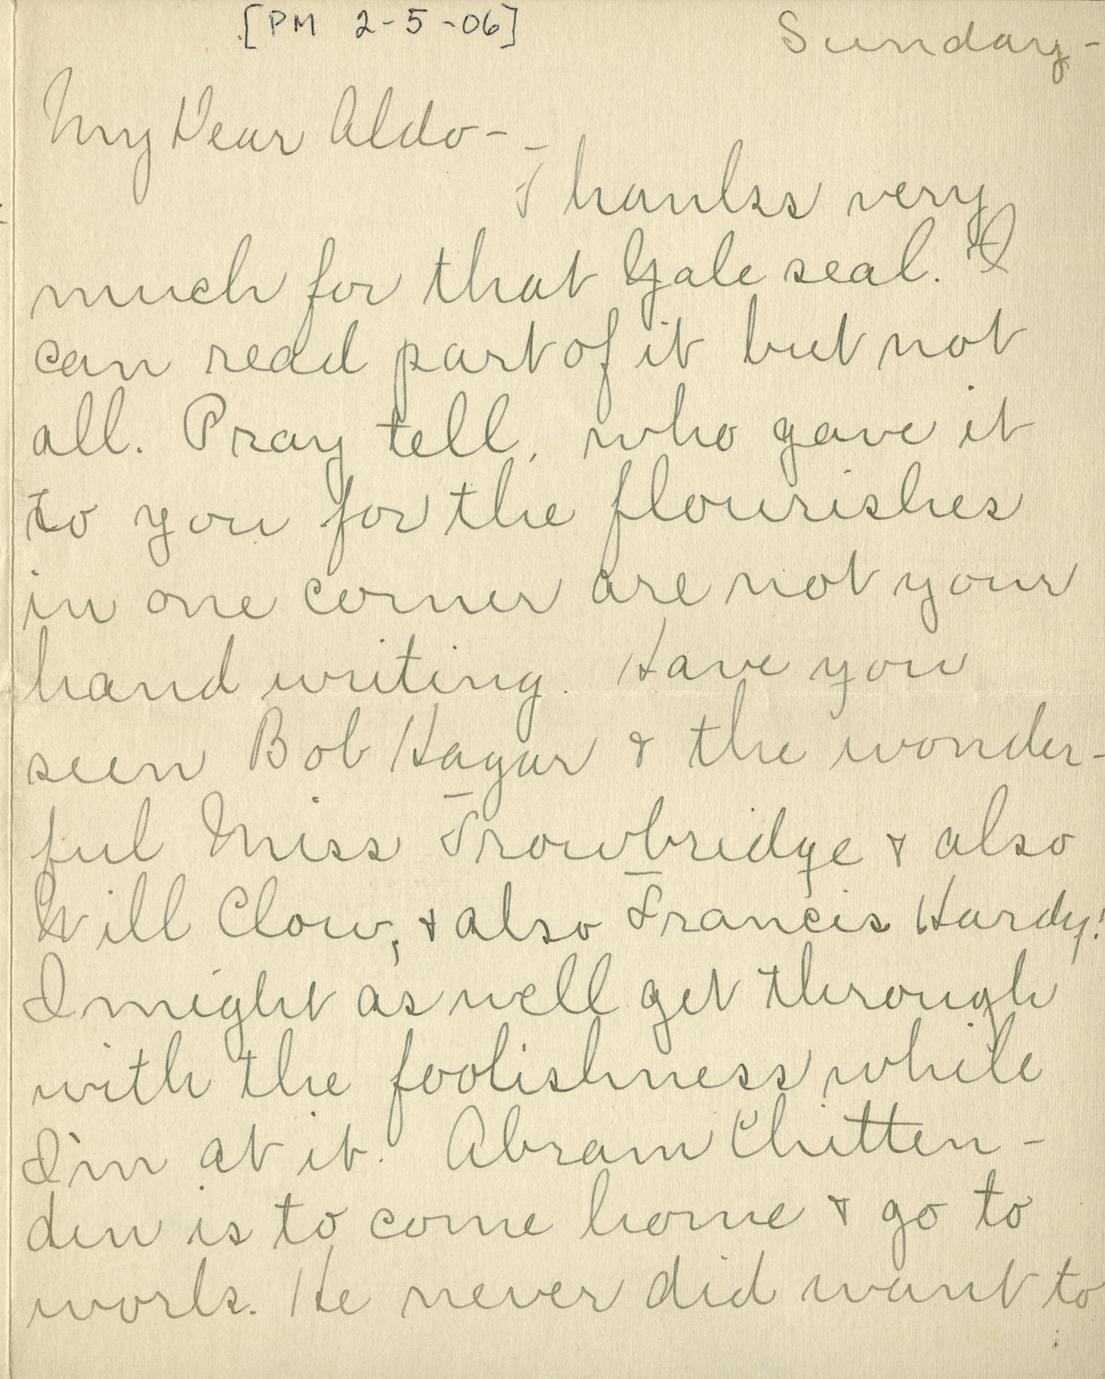 [PM 2-5-06]
Sunday-
My Dear Aldo-
Thanks very
much for that Yale seal. I
can read part of it but not
all. Pray tell, who gave it
to you for the flourishes
in one corner are not your
hand writing. Have you
seen Bob Hagar & the wonder-
ful Miss Trowbridge & also
Will Clow, & also Francis Hardy!
I might as well get through
with the foolishness while
I'm at it. Abram Chitten-
den is to come home & go to
work. He never did want to